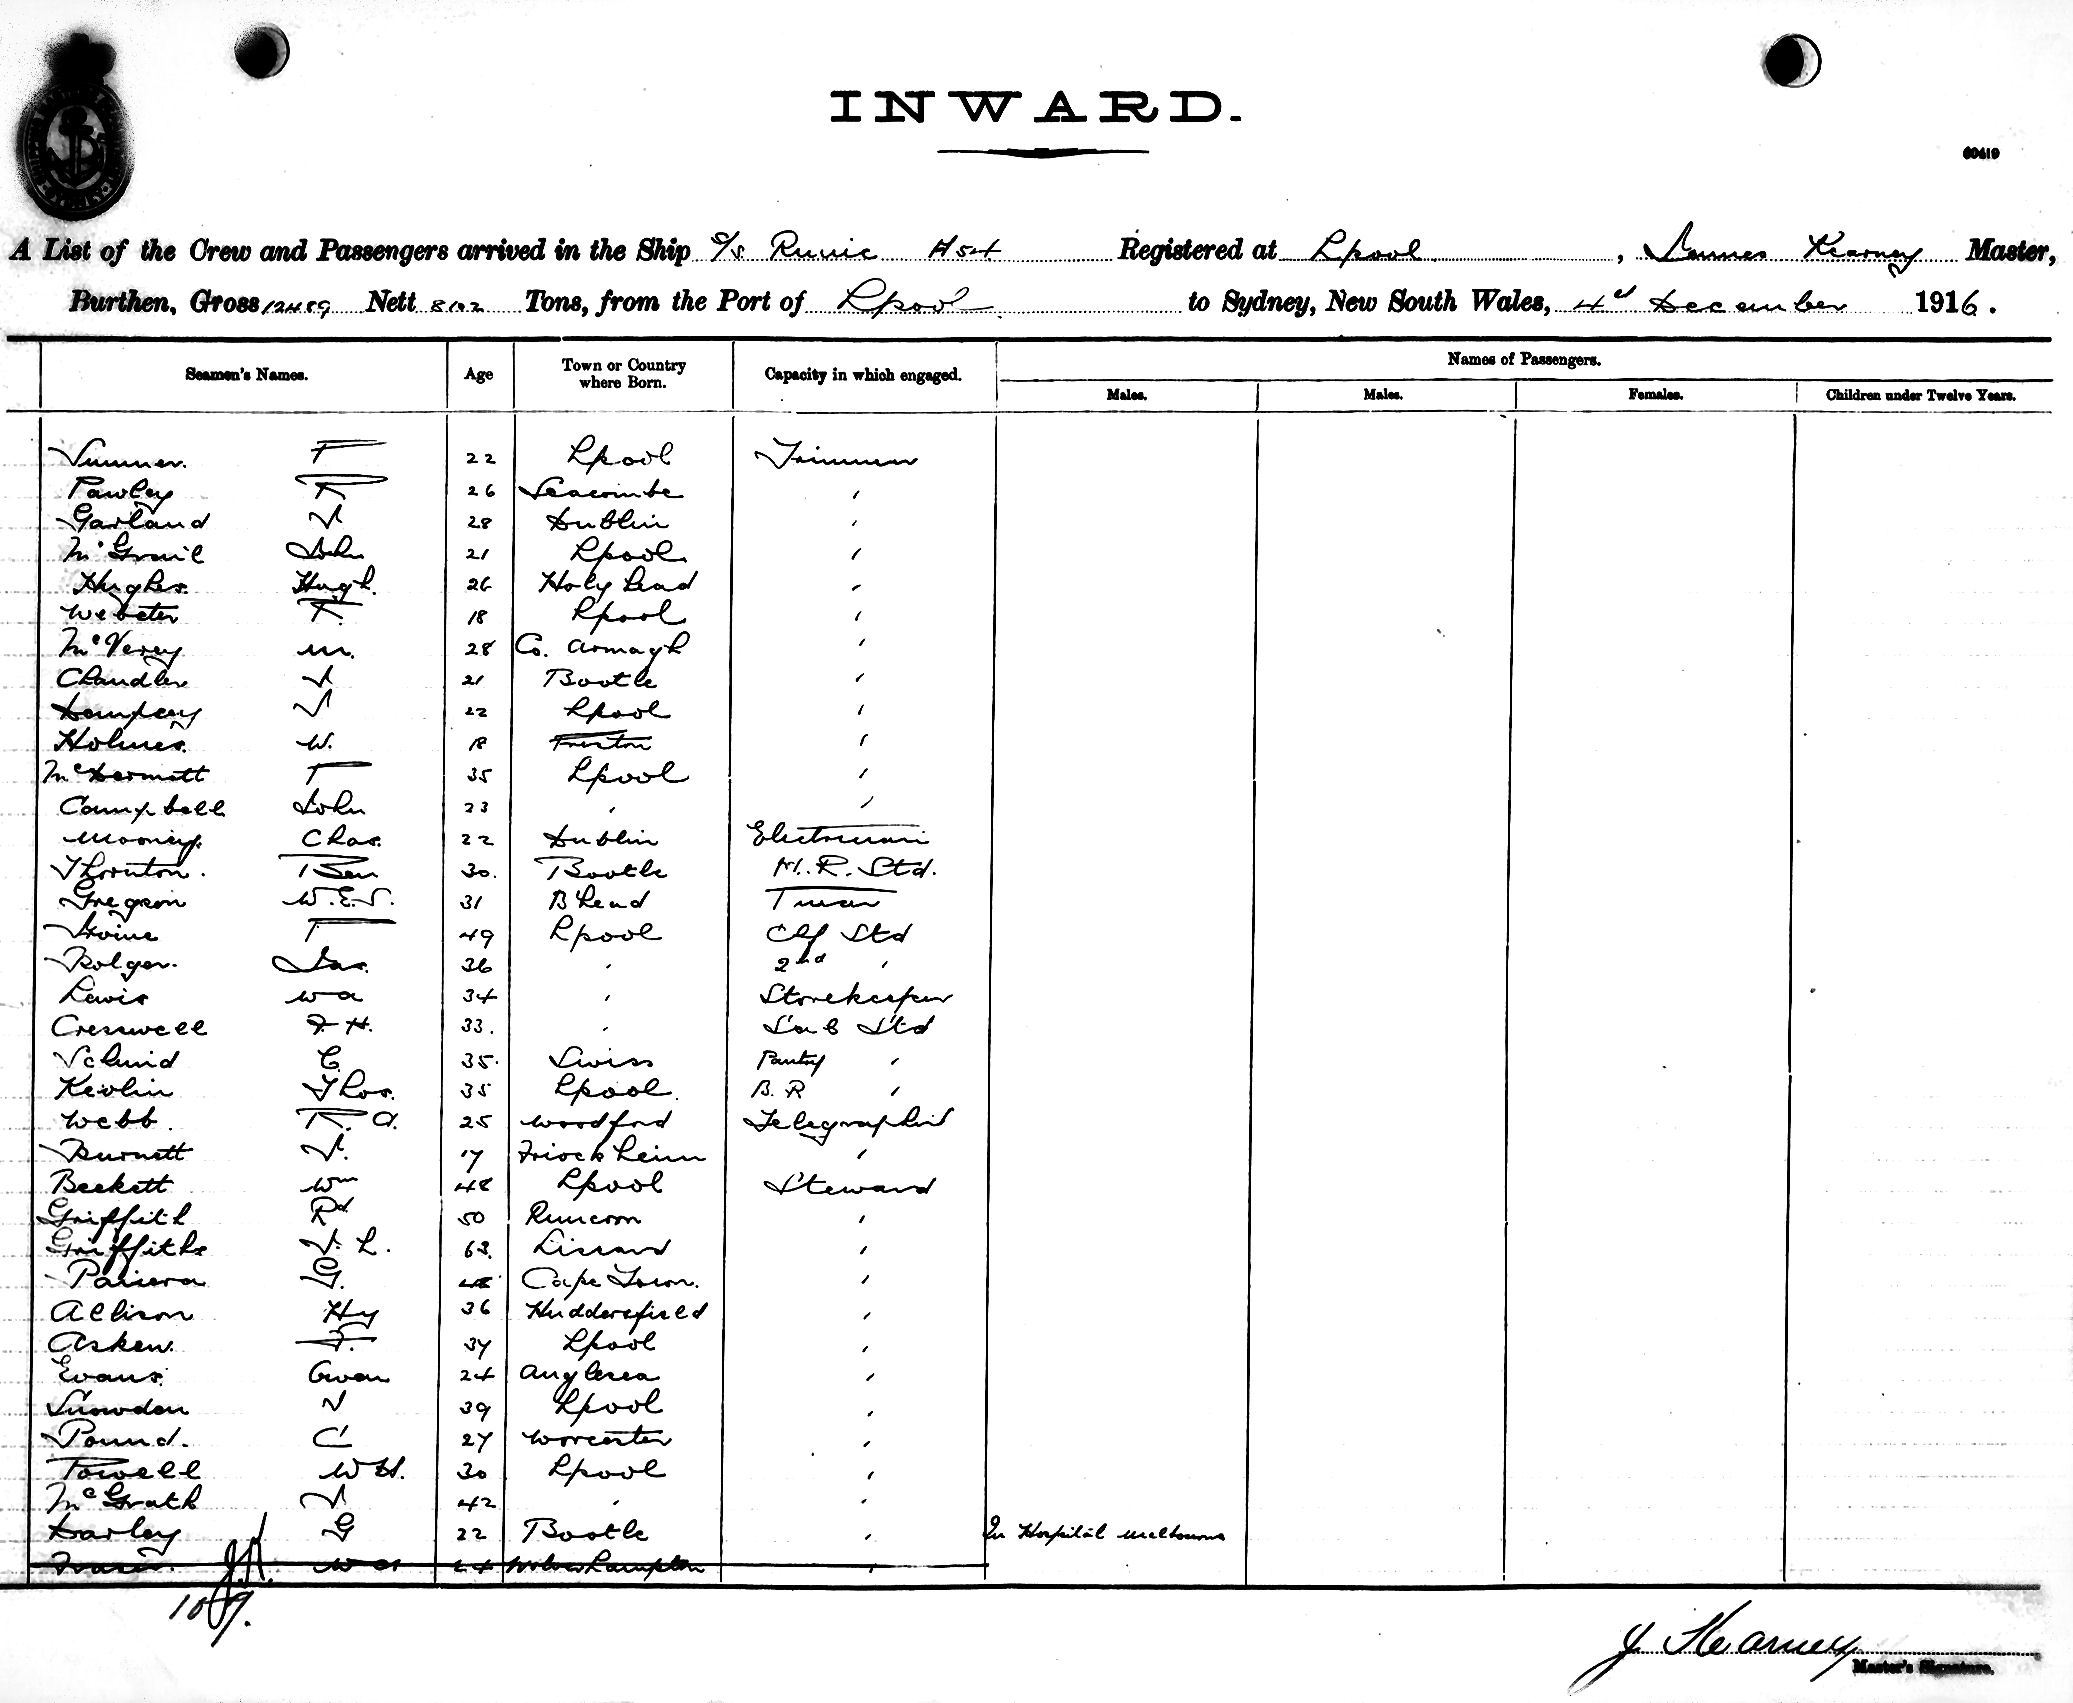 INWARD.
60419
A List of the Crew and Passengers arrived in the Ship S/S Runic A54 Registered at Lpool, James Kearney Master,
Burthen, Gross 12489 Nett 8102 Tons, from the Port of Lpool to Sydney, New South Wales, 4th December 1916.
Seamen's Names. Age Town or Country where Born. Capacity in which engaged. Names of Passengers.
Males. Males. Females. Children under Twelve Years.
Sumner. F 22 Lpool Trimmer
Pawley R 26 Seacombe "
Garland J 28 Dublin "
McGrail John 21 Lpool "
Hughes. Hugh. 26 Holyhead "
Webster R. 18 Lpool "
McVerey M. 28 Co. Armagh "
Chandler J 21 Bootle "
Dempsey J 22 Lpool "
Holmes. W. 18 Preston "
McDermott T 35 Lpool "
Campbell John 23 " "
Mooney. Chas. 22 Dublin Electrician
Thornton. Ben 30. Bootle M.R. Std.
Gregson W.E.S. 31 B'head
Irvine T 49 Lpool Chf Std
Bolger. Jas. 36 " 2nd "
Lewis W A 34 " Storekeeper
Cresswell F H. 33. " Sal Std
Schmid C. 35. Swiss Pantry "
Kevlin Thos. 35 Lpool. B.R "
Webb. R. A. 25 Woodford Telegraphist
Burnett J. 17 Friockheim "
Beckett Wm 48 Lpool Steward
Griffith Rd 50 Runcorn "
Griffiths J. L. 63. Liscard "
Pariera G. 48 Cape Town. "
Allison Hy 36 Huddersfield "
Askew. F. 37 Lpool "
Evans. Owen 24 Anglesea "
Snowden J 39 Lpool "
Pound. C 27 Worcester "
Powell W H. 30 Lpool "
McGrath J 42 " "
Darley G 22 Bootle " In Hospital Melbourne
Fraser. W H 24 Wolverhampton "
J.K.
J Kearney
Master's Signature.